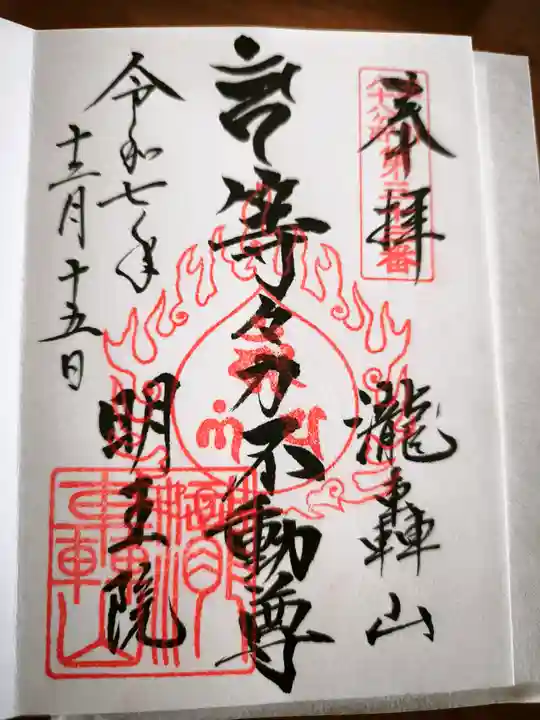 奉拝
瀧轟山
等々力不動尊
明王院
令和七年
十二月十五日